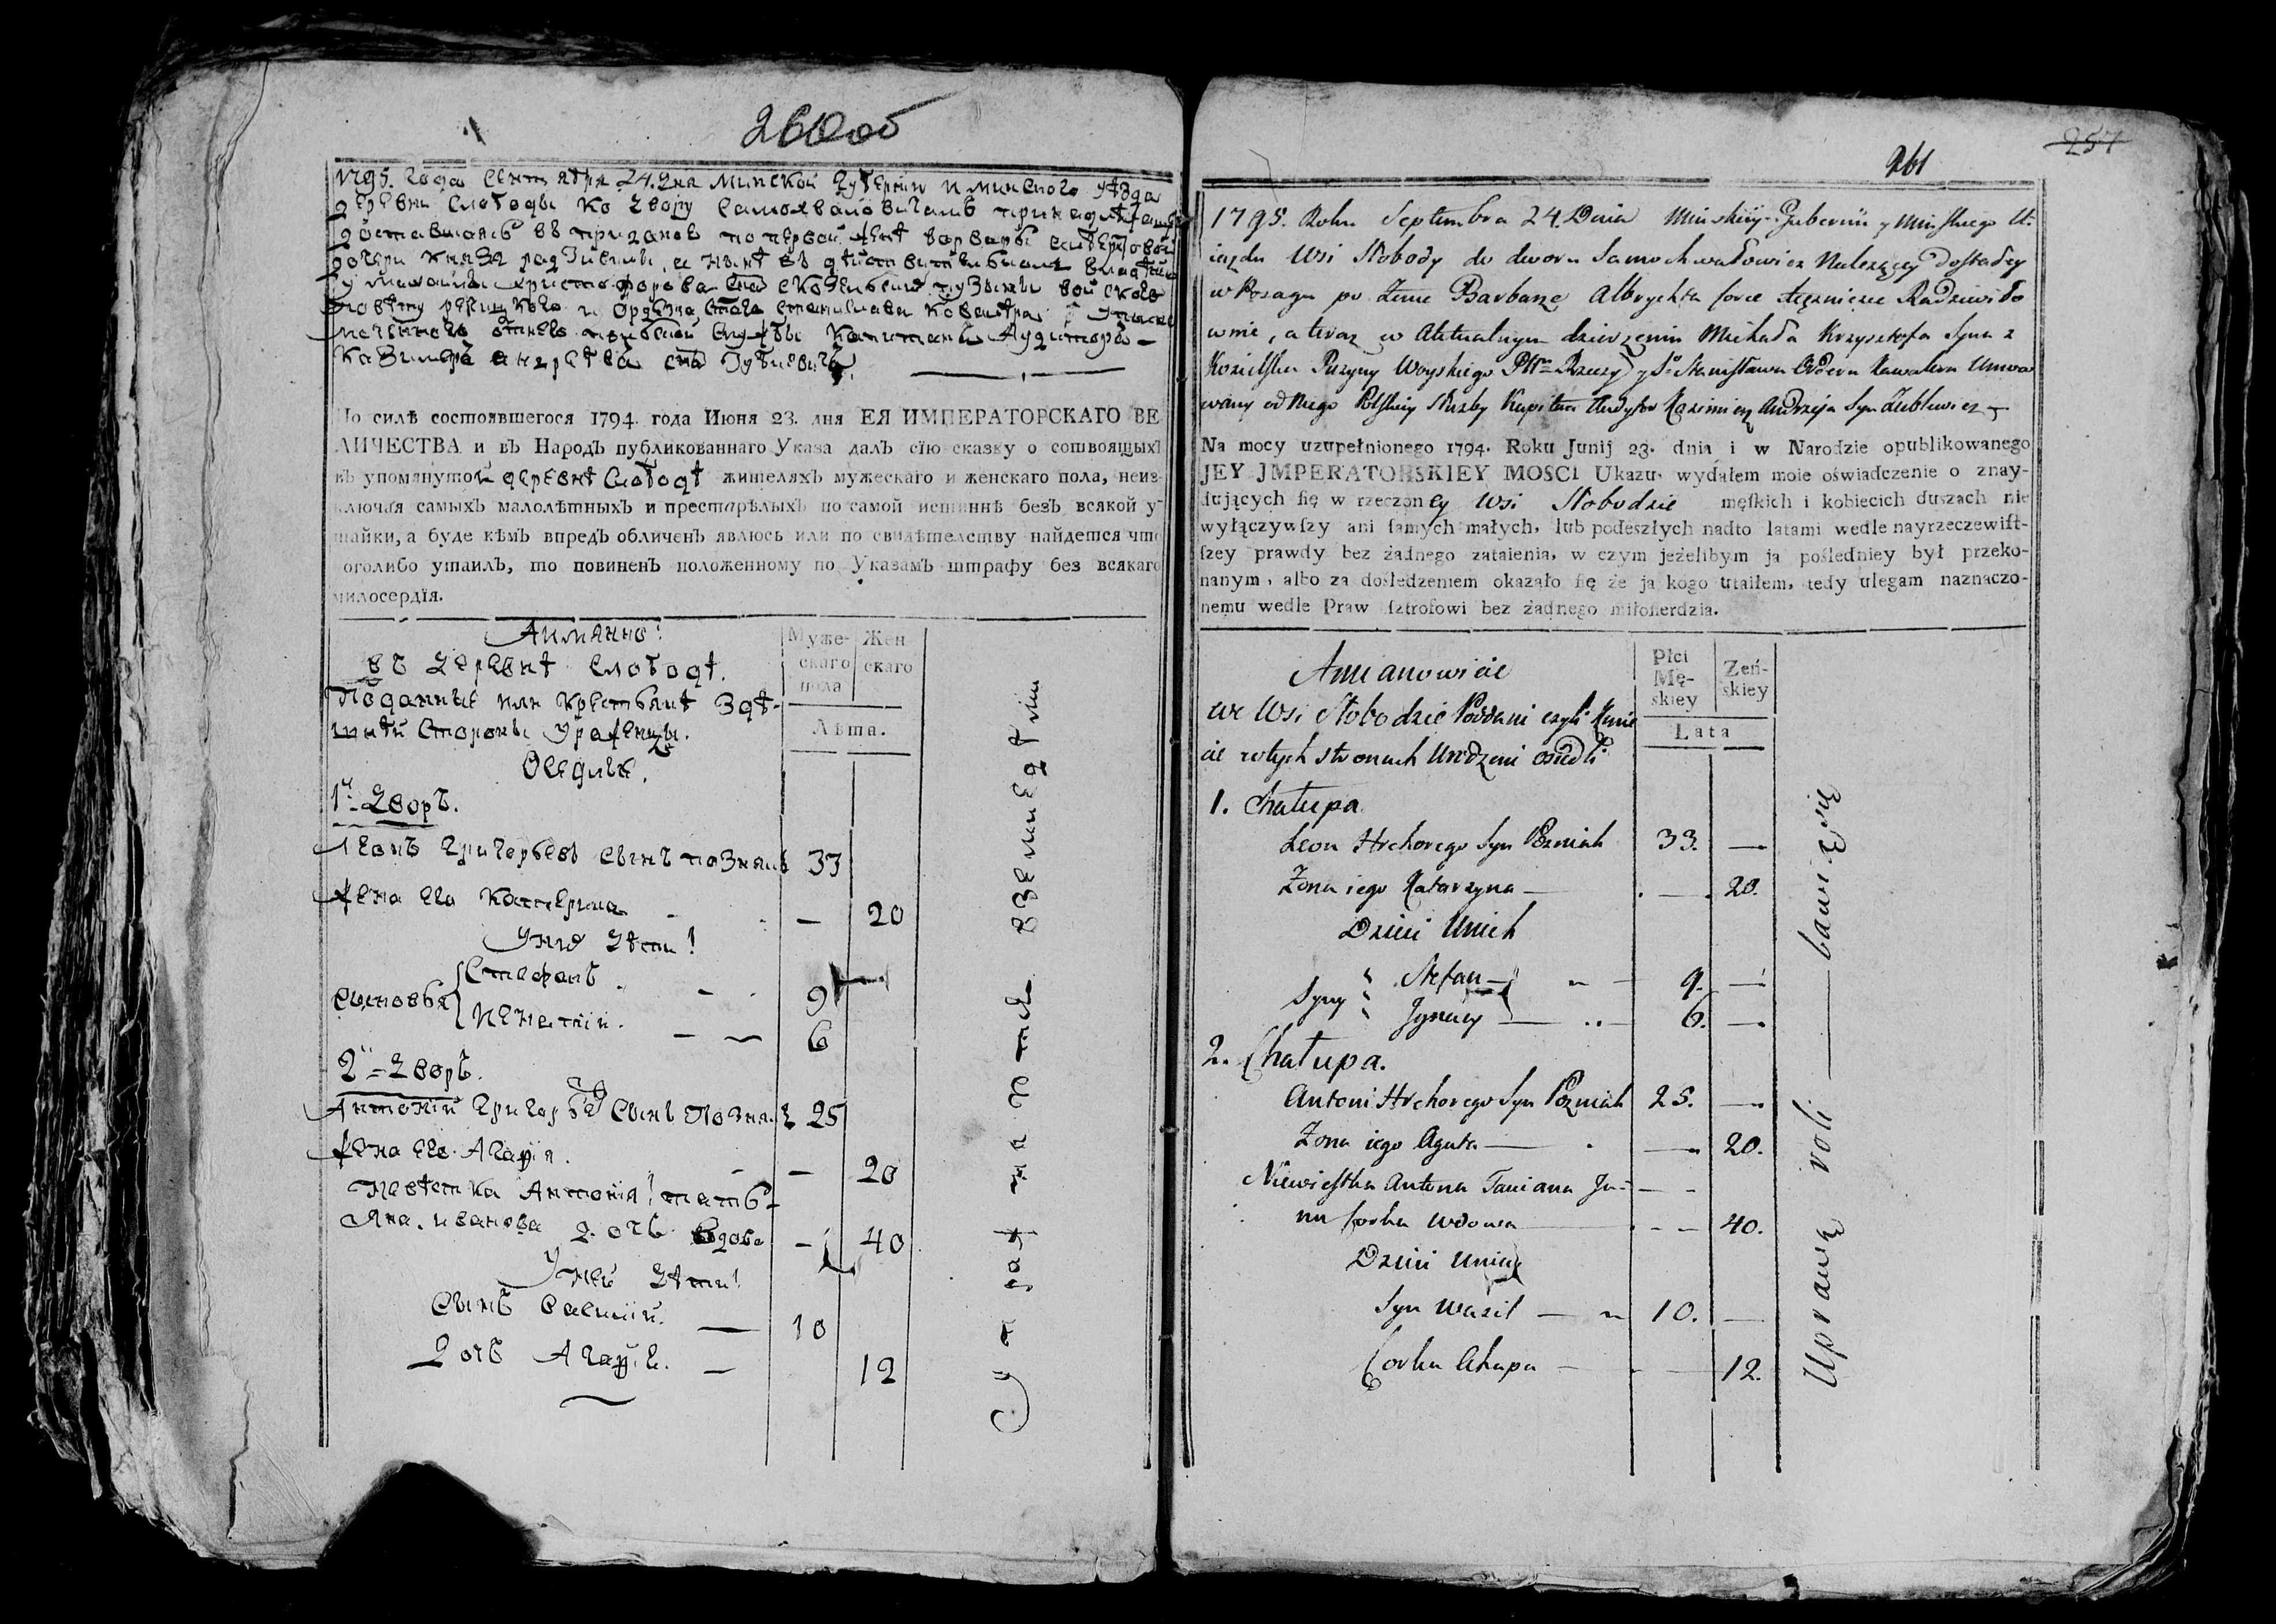 260об
1795. года Сентября 24. дня Минской Губернии и Минского уѣзда
деревни Слободы ко двору Самохваловичамъ принадлѣжащей
доставшаясь въ приданое по первой женѣ Варвары
дочери Князя Радзивила, а нынѣ въ дѣйствительномъ владѣніи
Михаила Христофорова сна Скозельска Пузыны Войского
повѣту Речицкого и ордена Стого Станислава Ковалера
польской службы Капитанъ Аудиторъ
Казимеръ Андреевъ снъ
По силѣ состоявшегося 1794. года Июня 23. дня ЕЯ ИМПЕРАТОРСКАГО ВЕ
ЛИЧЕСТВА и въ Народъ публикованнаго Указа далъ сїю сказку о состоящыхъ
въ упомянутой деревнѣ Слободѣ жителяхъ мужескаго и женскаго пола, неиз-
ключая самыхъ малолѣтныхъ и престарѣлыхъ по самой истиннѣ безъ всякой у
тайки, а буде кѣмъ впредъ обличенъ явлюсь или по свидѣтелству найдется что
оголибо утаилъ, то повиненъ положенному по Указамъ штрафу без всякаго
милосердїя.
Аимянно:
въ деревнѣ Слободѣ.
Поданные или Крестьянѣ Здѣ-
шнѣй Стороны Урожденцы.
Оседлые.
Муже-
скаго
пола
Жен
скаго
Лѣта.
1й Дворъ.
Леонъ Григорьевъ сынъ Познякъ 33
Жена его Катерина - 20
У них дѣти:
Сыновья { Стефанъ 9
Игнатий. 6
2й Дворъ.
Антоний Григорьевъ Сынъ Познякъ 25
Жена его Агафия. - 20
Невѣстка Антония: Тать-
яна Иванова дочь вдова - 40
У ней дѣти:
Сынъ Василий. 10
Дочь Агафия. 12
261
257
1795. Roku Septembra 24. Dnia Minskiey Gubernii y Minskiego U.
iazdu Wsi Słobody do dworu Samochwałowicz Należącey dostałey
w Posagu po Żenie Barbarze Albrychta corce Xiężniczce Radziwiło
wnie, a teraz w Aktualnym dzierzeniu Michała Krzysztofa Syna z
Kozielska Puzyny Woyskiego Pttu Rzeczy y So Stanisława Ordera Kawalera Umoco
wany od Niego Polskiey Służby Kapitan Audytor Kazimierz Andrzeja Syn
Na mocy uzupełnionego 1794. Roku Junij 23. dnia i w Narodzie opublikowanego
JEY JMPERATORSKIEY MOSCI Ukazu, wydałem moie oświadczenie o znay-
duiących ſię w rzeczoney Wsi Słobodzie męſkich i kobiecich duszach nie
wyłączywſzy ani ſamych małych, lub podeszłych nadto latami wedle nayrzeczewiſt-
ſzey prawdy bez żadnego zataienia, w czym jeżelibym ja poſledniey był przeko-
nanym, albo za doſledzeniem okazało ſię że ja kogo utaiłem, tedy ulegam naznaczo-
nemu wedle Praw ſztrofowi bez żadnego miłoſierdzia.
Amianowicie
we Wsi Słobodzie Poddani czyli Kmie
cie w tych stronach Urodzeni osiedli
Płci
Mę-
skiey
Żeń-
skiey
Lata
1. Chałupa
Leon Hrehorego Syn Pozniak 33. —
Żona iego Katarzyna — 20.
Dzieci U nich
Syny Stefan 9. —
Jgnacy 6. —
2. Chałupa.
Antoni Hrehorego Syn Pozniak 25. —
Żona iego Agata — 20.
Niewiestka Antona Taciana Ja-
na Corka Wdowa 40.
Dzieci U niey
Syn Wasil 10. —
Corka Ahapa 12.
Uprawą roli — bawią się